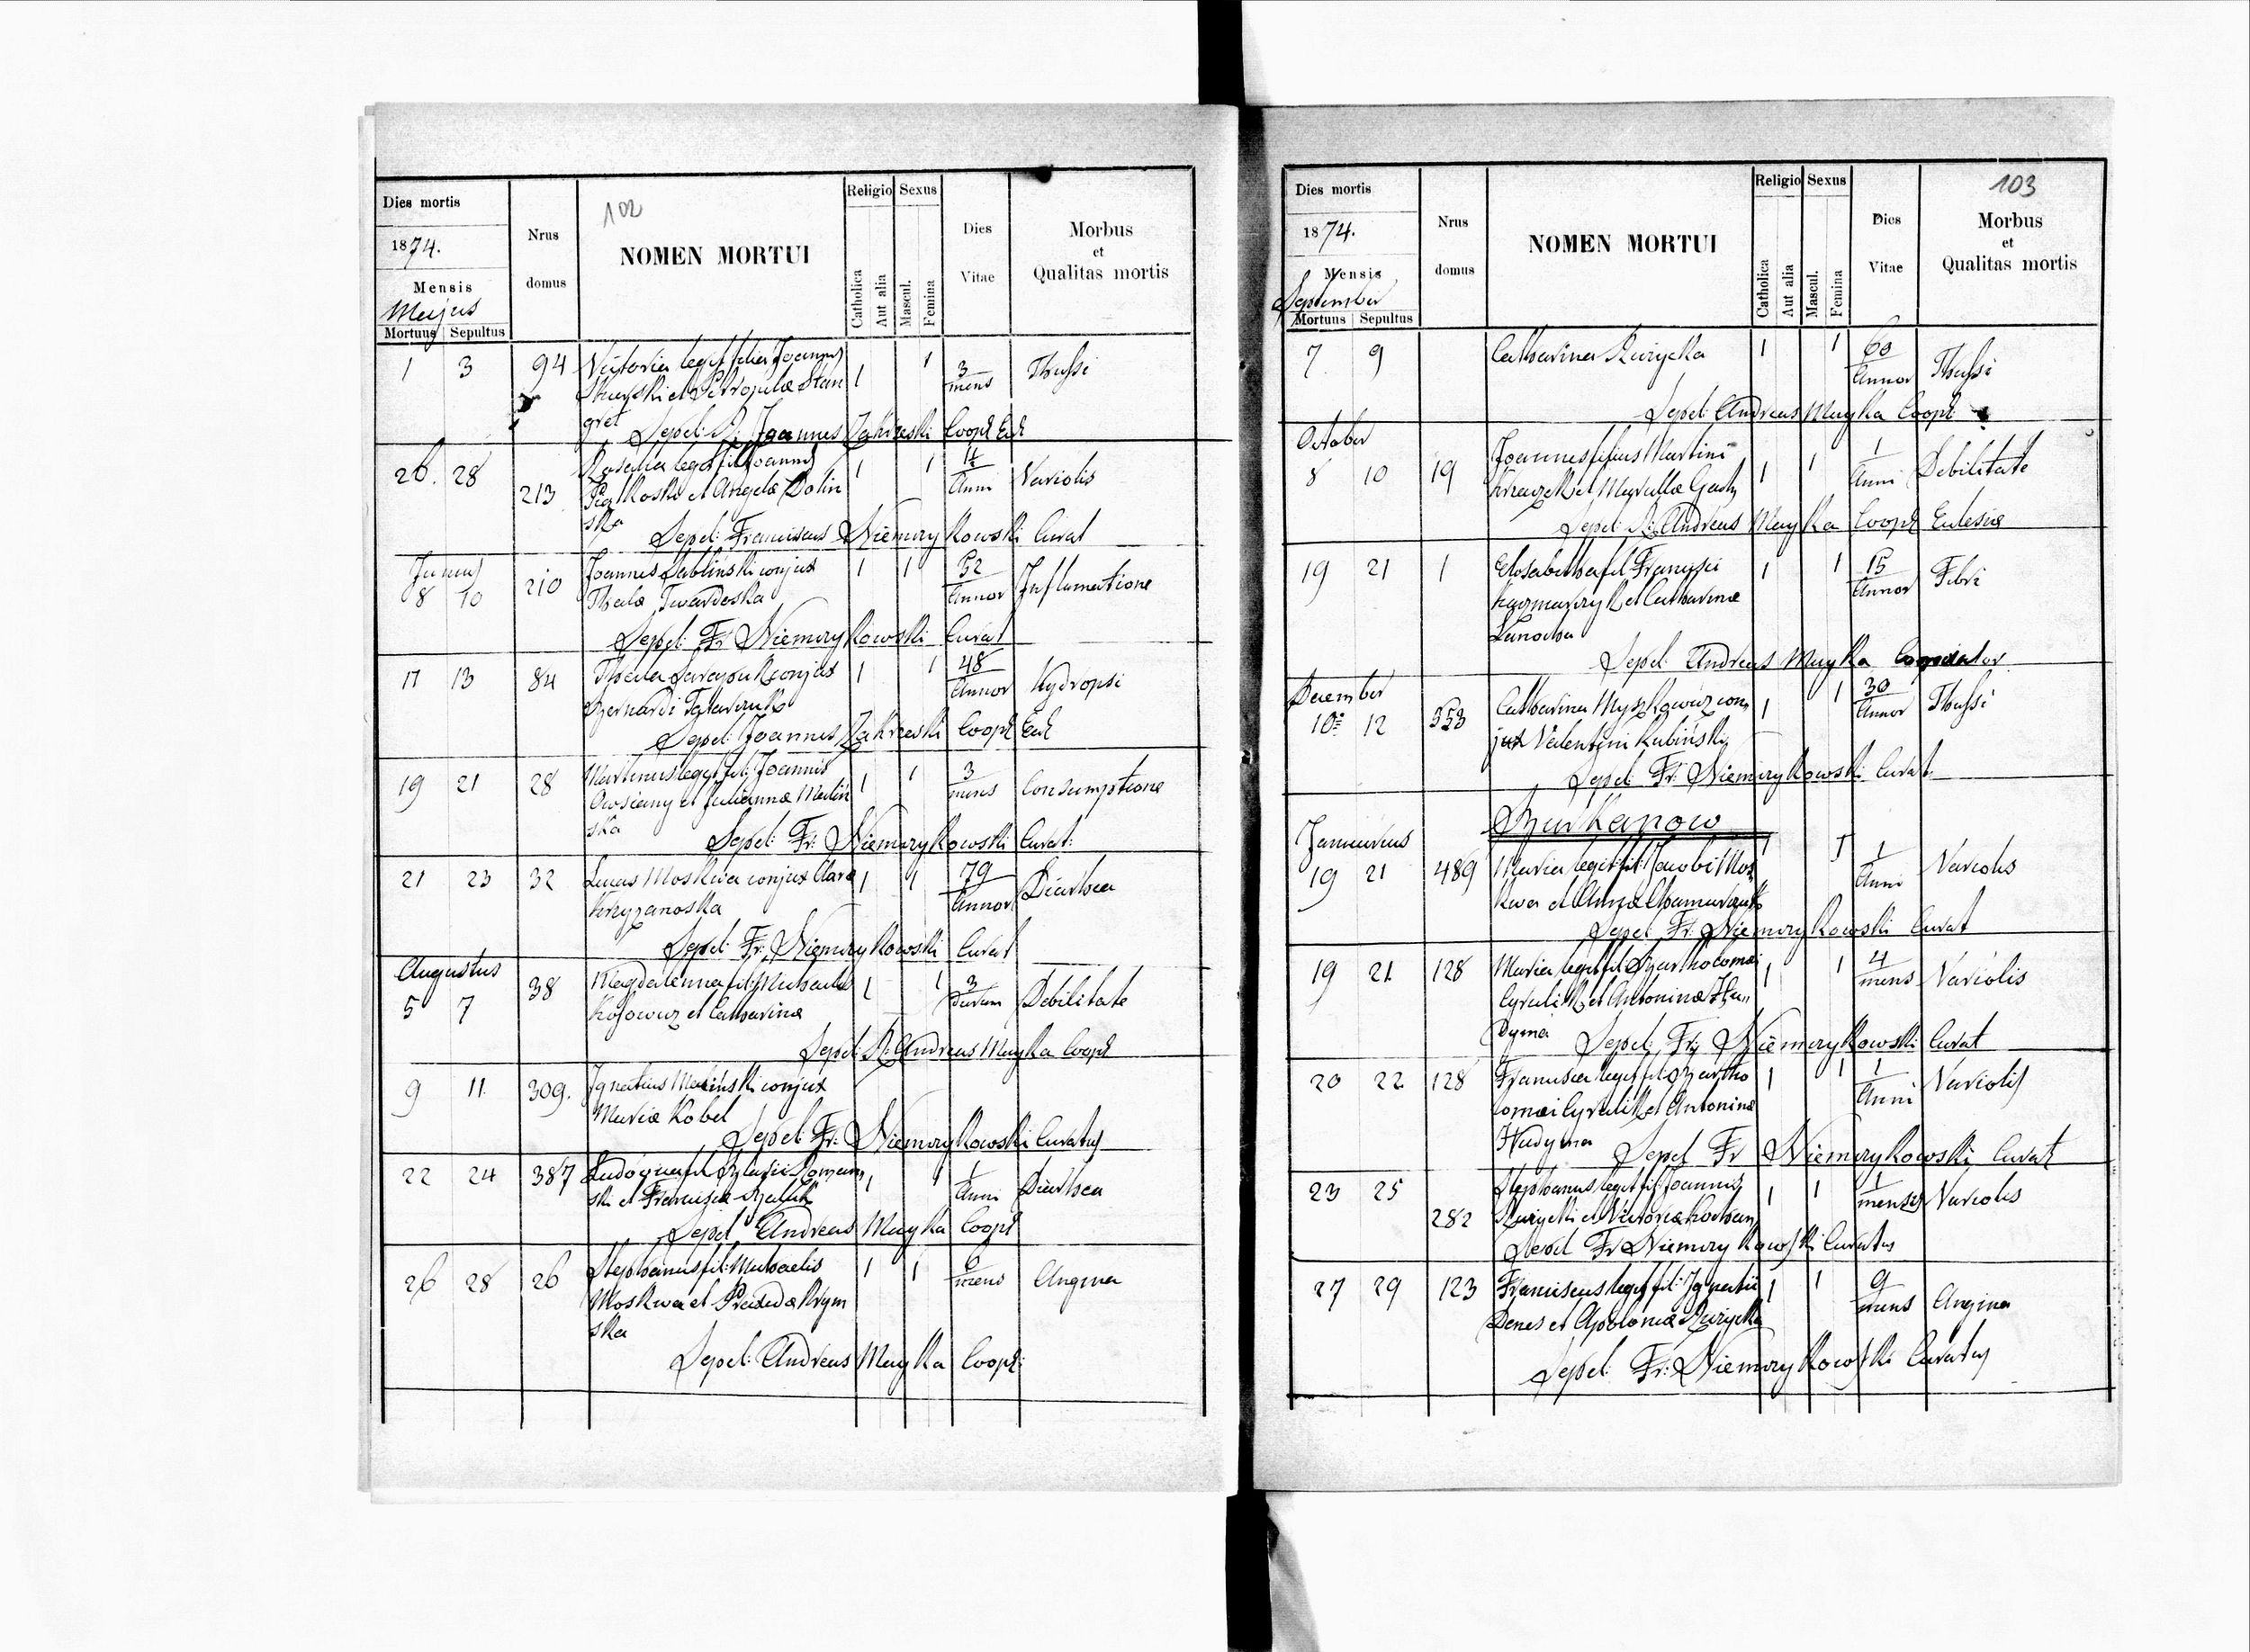 Dies mortis
1874.
Mensis
Majus
Mortuus Sepultus
Nrus
domus
102
NOMEN MORTUI
Religio Sexus
Catholica
Aut alia
Mascul.
Femina
Dies
Vitae
Morbus
et
Qualitas mortis
1 3 94 Victoria legit filia Joannis 1 1 3 mens Thussi
et
Sepel: R: Joannes Zakrzeski Coop Ecl
26. 28 213 Rosalia legit fil Joannis 1 1 Anni Variolis
et Angelæ Dolin
ska
Sepel: Franciscus Niemczykowski Curat
Junius
8 10 210 Joannes Lubliński conjux 1 1 52 Annor Inflamatione
Theclæ Twardoska
Sepel: Fr Niemczykowski Curat
11 13 84 Thecla conjux 1 1 48 Annor Hydropsi
Bernardi
Sepel: Joannes Zakrzeski Coop Ecl
19 21 28 Martinus legit fil: Joannis 1 1 3 mens Consumptione
Owsiany et Juliannæ Malin
ska
Sepel: Fr: Niemczykowski Curat:
21 23 32 Lucas Moskwa conjux Claræ 1 1 79 Annor Diarhea
Krzyzanoska
Sepel: Fr: Niemczykowski Curat
Augustus
5 7 38 Magdalenna fil: Michaelis 1 1 3 Debilitate
Kosowicz et Catharinæ
Sepel: R: Andreas Muyka Coop
9 11 309. Ignatius Maliński conjux
Mariæ Kobel
Sepel: Fr: Niemczykowski Curatus
22 24 387 fil Roman
ski et 1 1 1 Anni Diarhea
Sepel Andreas Muyka Coop
26 28 26 Stephanus fil: Michaelis 1 1 6 mens Angina
Moskwa et Praxedæ Krym
ska
Sepel: Andreas Muyka Coop:
Dies mortis
1874.
Mensis
September
Mortuus Sepultus
Nrus
domus
NOMEN MORTUI
Religio Sexus
Catholica
Aut alia
Mascul.
Femina
Dies
Vitae
103
Morbus
et
Qualitas mortis
7 9 Catharina Kurycka 1 1 60 Annor Thussi
Sepel: Andreas Muyka Coop
October
8 10 19 Joannes filius Martini 1 1 1 Anni Debilitate
et
Sepel: R: Andreas Muyka Coop Eclesiæ
19 21 1 Elisabetha fil Francisci 1 1 15 Annor Febri
Kaczmarczyk et Catharinæ
Sepel: Andreas Muyka Cooperator
December
10 12 353 Catharina Myszkowicz con 1 1 30 Annor Thussi
jux Valentini Rubiński
Sepel: Fr: Niemczykowski Curat.
Burkanow
Januarius
19 21 489 Maria legit: fil: Jacobi Mos 1 1 1 Anni Variolis
kwa et Annæ
Sepel Fr: Niemczykowski Curat
19 21 128 Maria legit fil Bartholomæi 1 1 4 mens Variolis
Cyrulik et Antoninæ Hu
dyma
Sepel: Fr: Niemczykowski Curat
20 22 128 Francisca legit fil Bartho 1 1 1 Anni Variolis
lomæi Cyrulik et Antoninæ
Hudyma
Sepel Fr Niemczykowski Curat
23 25 282 Stephanus legit fil: Joannis 1 1 1 mensis Variolis
Kurycki et Victoriæ
Sepel Fr Niemczykowski Curatus
27 29 123 Franciscus legit fil: Ignatii 1 1 9 mens Angina
Denes et Apoloniæ Kurycka
Sepel: Fr: Niemczykowski Curatus